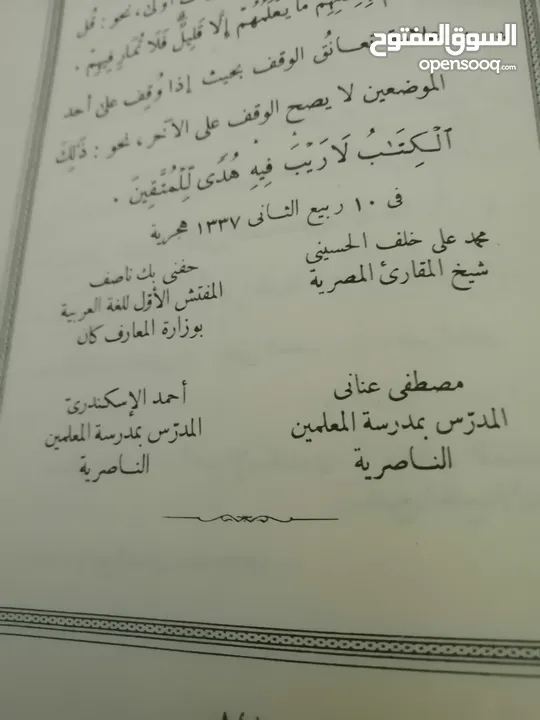 السوق المفتوح
opensooq.com
أولى، نحو: قُل
مَّا يَعْلَمُهُمْ إِلَّا قَلِيلٌ فَلَا تُمَارِ فِيهِمْ.
تعانُق الوقف بحيث إذا وُقِف على أحد
الموضعين لا يصح الوقف على الآخر، نحو: ذَٰلِكَ
ٱلْكِتَـٰبُ لَا رَيْبَ فِيهِ هُدًى لِّلْمُتَّقِينَ.
فى ١٠ ربيع الثانى ١٣٣٧ هجرية
محمد على خلف الحسينى
شيخ المقارئ المصرية
حفنى بك ناصف
المفتش الأوّل للغة العربية
بوزارة المعارف كان
مصطفى عنانى
المدرّس بمدرسة المعلمين
الناصرية
أحمد الإسكندرى
المدرّس بمدرسة المعلمين
الناصرية